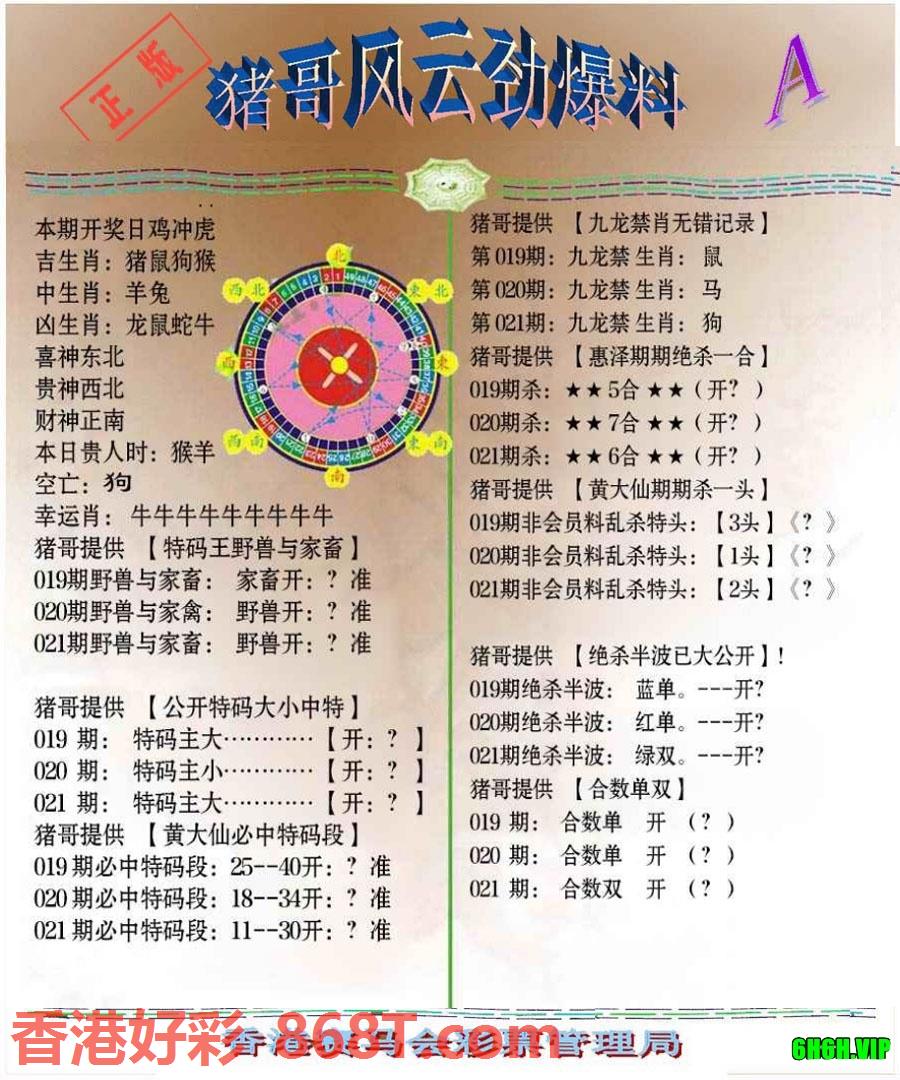 正版
猪哥风云劲爆料
A
本期开奖日鸡冲虎
吉生肖：猪鼠狗猴
中生肖：羊兔
凶生肖：龙鼠蛇牛
喜神东北
贵神西北
财神正南
本日贵人时：猴羊
空亡：狗
幸运肖：牛牛牛牛牛牛牛牛牛
北
西北
東北
西
東
西南
東南
南
猪哥提供 【特码王野兽与家畜】
019期野兽与家畜： 家畜开：？准
020期野兽与家禽： 野兽开：？准
021期野兽与家畜： 野兽开：？准
猪哥提供 【公开特码大小中特】
019 期： 特码主大…………【开：？】
020 期： 特码主小…………【开：？】
021 期： 特码主大…………【开：？】
猪哥提供 【黄大仙必中特码段】
019期必中特码段：25--40开：？准
020期必中特码段：18--34开：？准
021期必中特码段：11--30开：？准
猪哥提供 【九龙禁肖无错记录】
第019期：九龙禁生肖： 鼠
第020期：九龙禁生肖： 马
第021期：九龙禁生肖： 狗
猪哥提供 【惠泽期期绝杀一合】
019期杀：★★5合★★（开？）
020期杀：★★7合★★（开？）
021期杀：★★6合★★（开？）
猪哥提供 【黄大仙期期杀一头】
019期非会员料乱杀特头：【3头】《？》
020期非会员料乱杀特头：【1头】《？》
021期非会员料乱杀特头：【2头】《？》
猪哥提供 【绝杀半波已大公开】！
019期绝杀半波： 蓝单。---开?
020期绝杀半波： 红单。---开?
021期绝杀半波： 绿双。---开?
猪哥提供 【合数单双】
019 期： 合数单 开 （？）
020 期： 合数单 开 （？）
021 期： 合数双 开 （？）
香港好彩 868T.com
香港赛马会彩票管理局
6H6H.VIP